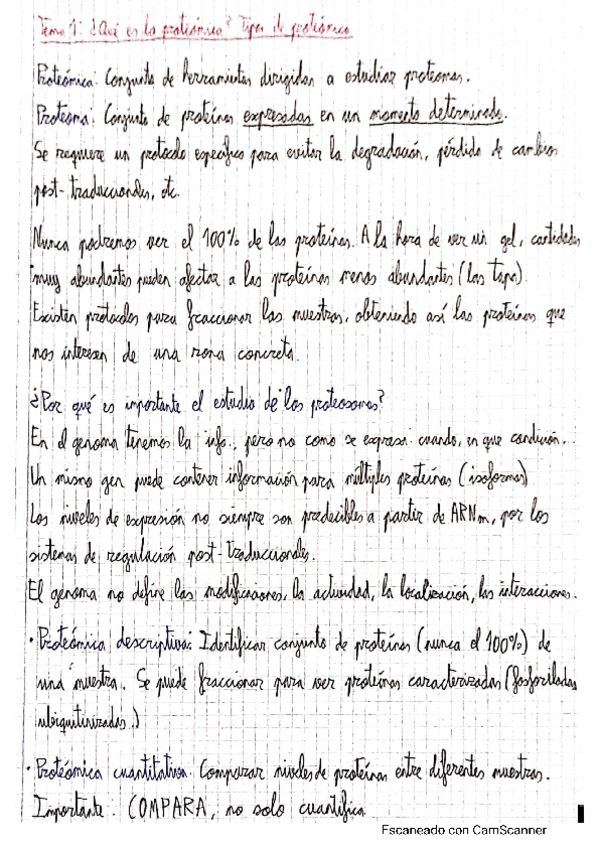 Tema 1: ¿Qué es la proteómica? Tipos de proteómica
Proteómica: Conjunto de herramientas dirigidas a estudiar proteomas.
Proteoma: Conjunto de proteínas expresadas en un momento determinado.
Se requiere un protocolo específico para evitar la degradación, pérdida de cambios
post-traduccionales, etc.
Nunca podremos ver el 100% de las proteínas. A la hora de ver un gel, cantidades
muy abundantes pueden afectar a las proteínas menos abundantes (las tapa).
Existen protocolos para fraccionar las muestras, obteniendo así las proteínas que
nos interesen de una zona concreta.
¿Por qué es importante el estudio de los proteosomas?
En el genoma tenemos la info., pero no como se expresa: cuando, en que condición...
Un mismo gen puede contener información para múltiples proteínas (isoformas)
Los niveles de expresión no siempre son predecibles a partir de ARNm, por los
sistemas de regulación post-traduccionales.
El genoma no define las modificaciones, la actividad, la localización, las interacciones.
· Proteómica descriptiva: Identificar conjunto de proteínas (nunca el 100%) de
una muestra. Se puede fraccionar para ver proteínas caracterizadas (fosforiladas
ubiquitinizadas.)
· Proteómica cuantitativa. Comparar niveles de proteínas entre diferentes muestras.
Importante. COMPARA, no solo cuantifica
Escaneado con CamScanner